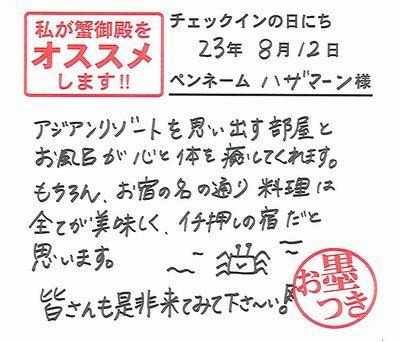 私が蟹御殿を
オススメ
します!!
チェックインの日にち
23年 8月12日
ペンネーム ハザマーン様
アジアンリゾートを思い出す部屋と
お風呂が心と体を癒してくれます。
もちろん、お宿の名の通り料理は
全てが美味しく、イチ押しの宿だと
思います。
皆さんも是非来てみて下さ〜い。
お墨つき